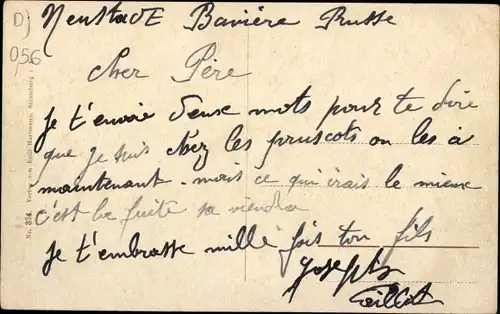 D)
956
Neustadt Bavière Prusse
Cher Père
Je t'envoie deux mots pour te dire
que je suis chez les pruscots on les à
maintenant. mais ce qu'irais le mieux
c'est la fuite sa viendra
Je t'embrasse mille fois ton fils
Joseph
Nr. 334. Verlag von Hartmann, Strassburg